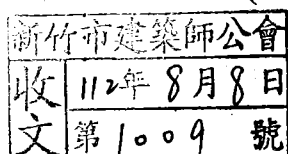 新竹市建築師公會
收文
112年 8月 8日
第 1009 號